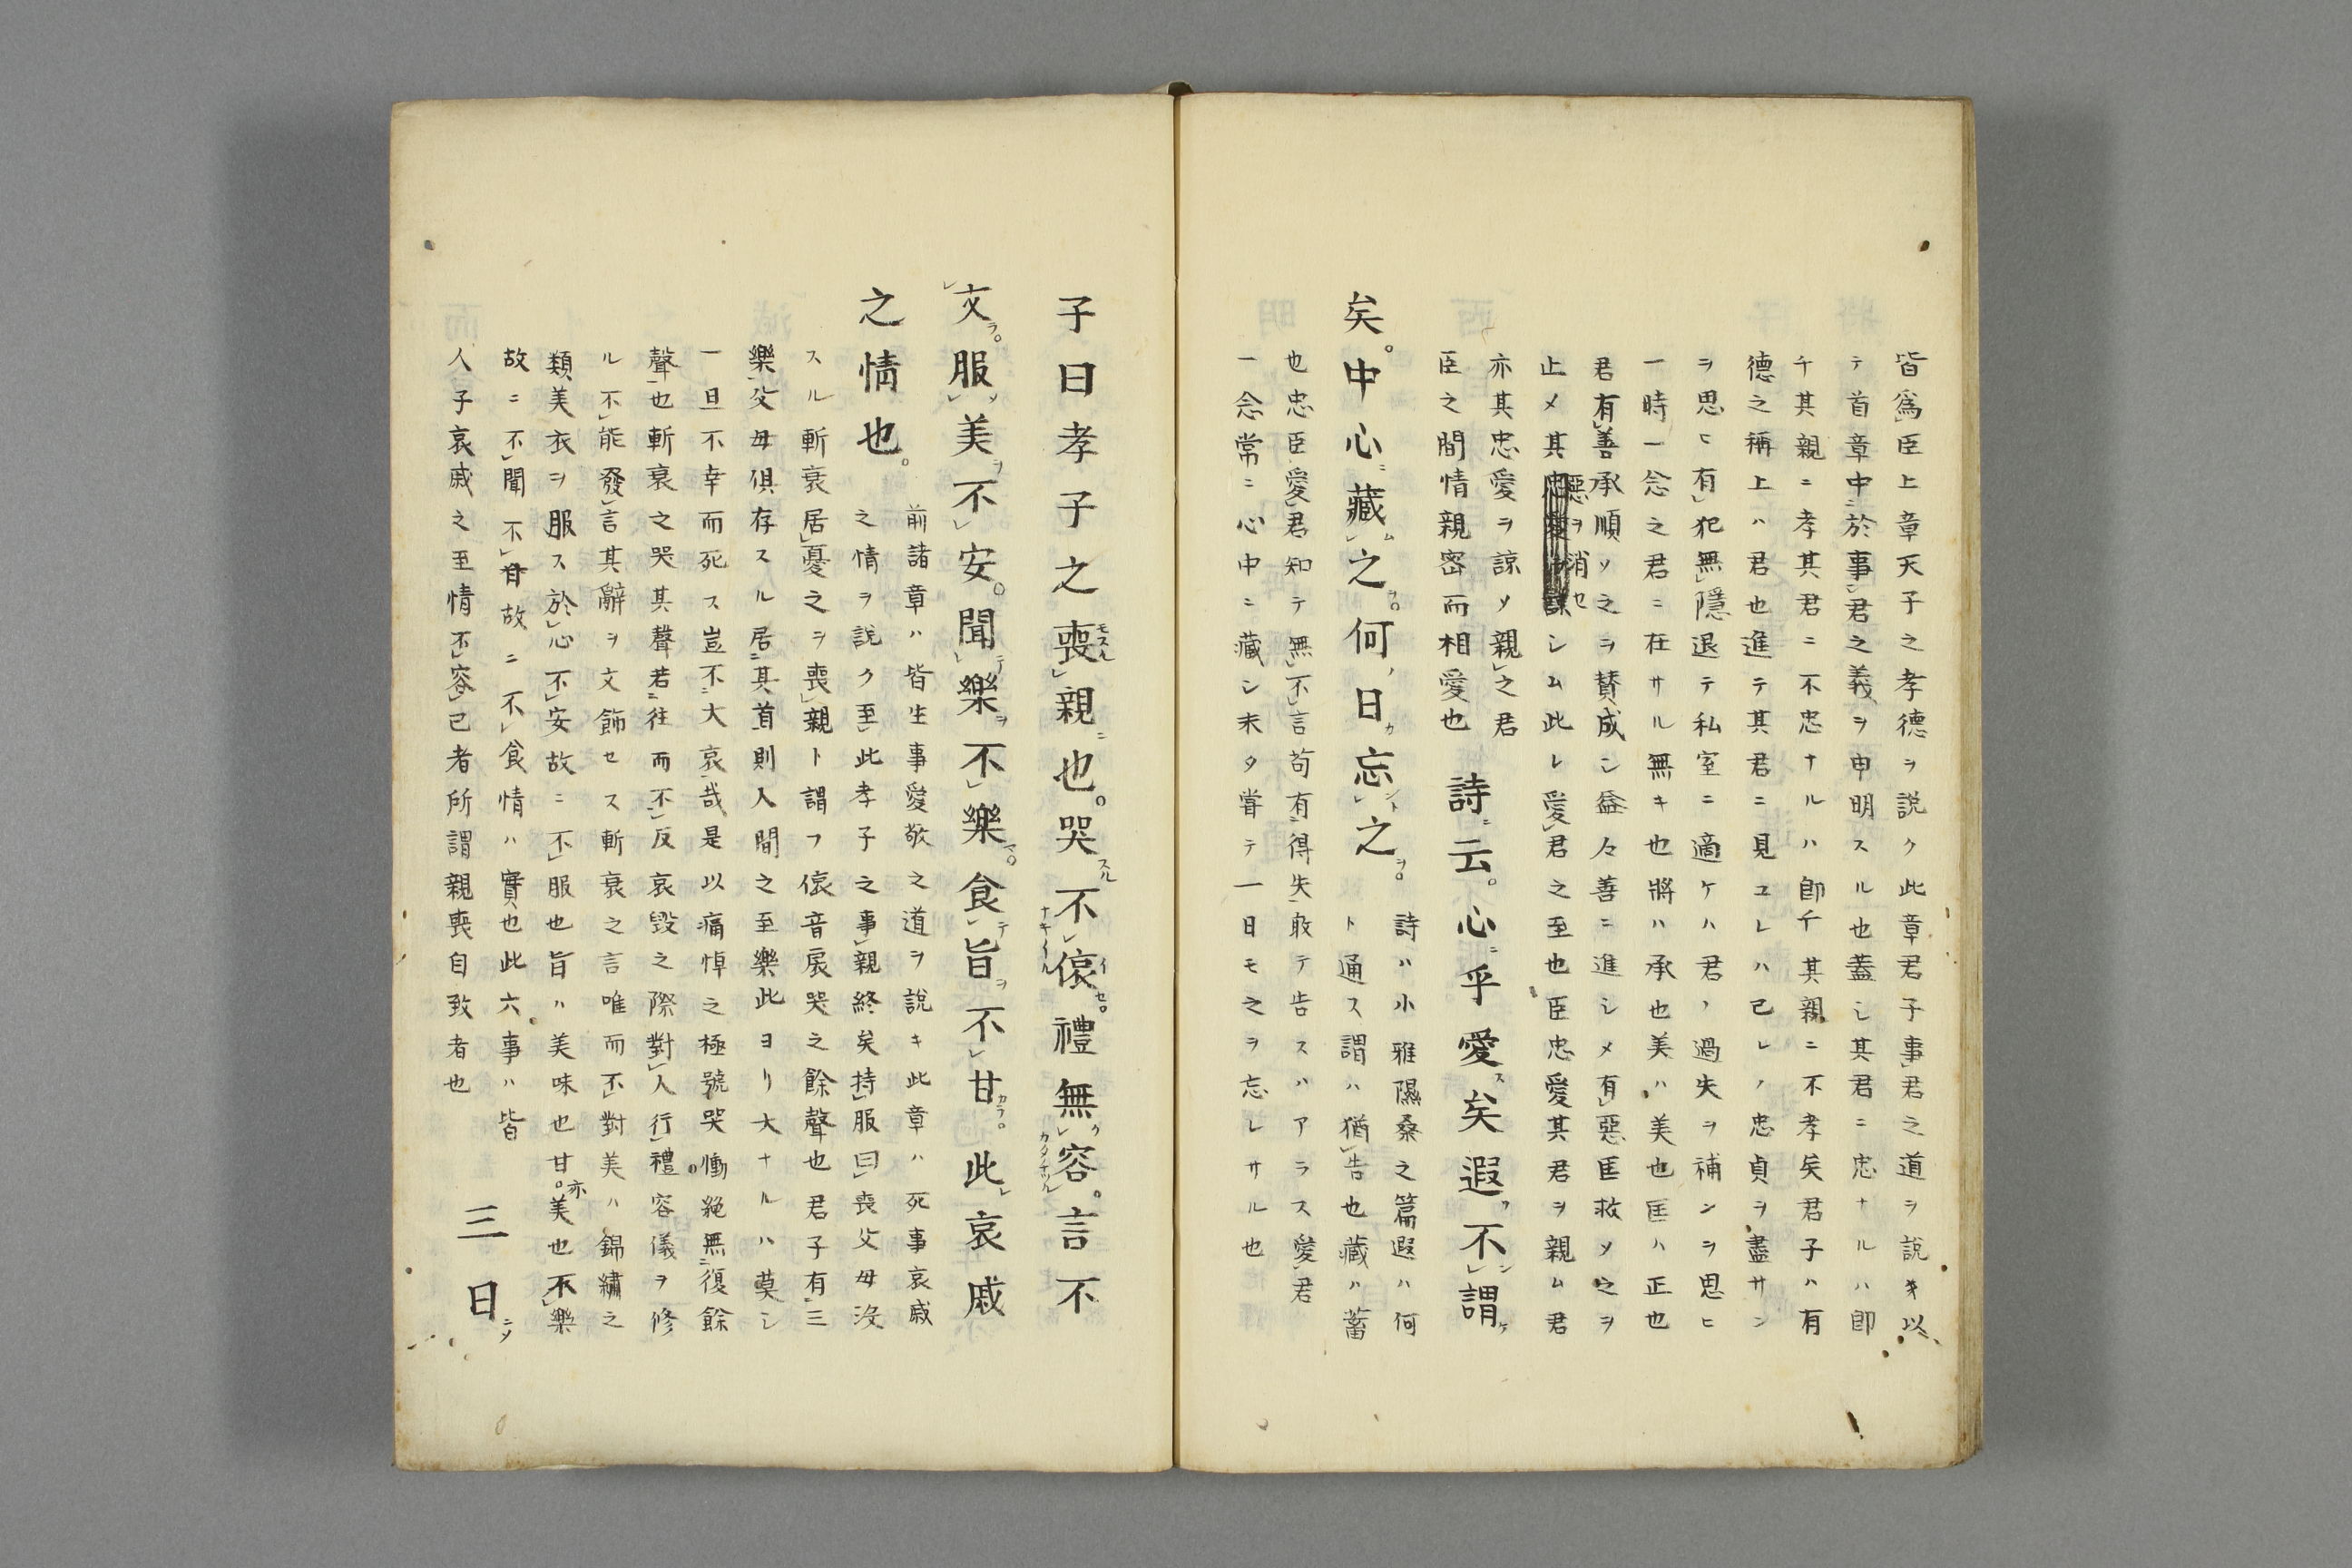 皆爲臣上章天子之孝德ヲ説ク此章君子事君之道ヲ説キ以
テ首章中於事君之義ヲ申明スル也蓋シ其君ニ忠ナルハ即
チ其親ニ孝其君ニ不忠ナルハ即チ其親ニ不孝矣君子ハ有
德之稱上ハ君也進テ其君ニ見ユレハ己レノ忠貞ヲ盡サン
ヲ思ヒ有犯無隱退テ私室ニ適ケハ君ノ過失ヲ補ンヲ思ヒ
一時一念之君ニ在サル無キ也將ハ承也美ハ美也匡ハ正也
君有善承順ソ之ヲ賛成シ益々善ニ進シメ有惡匡救ソ之ヲ
止メ其惡ヲ消セシム此レ愛君之至也臣忠愛其君ヲ親ム君
亦其忠愛ヲ諒ソ親之君
臣之間情親密而相愛也
詩ニ云。心ニ乎愛ス矣遐ソ不ン謂ケ
矣。中心ニ藏ム之ヲ。何ノ日カ忘ント之ヲ。
詩ハ小雅隰桑之篇遐ハ何
ト通ス謂ハ猶告也藏ハ蓄
也忠臣愛君知テ無不言苟有得失敢テ告スハアラス愛君
一念常ニ心中ニ藏シ未タ甞テ一日モ之ヲ忘レサル也
子曰孝子之喪モスル親ニ也。哭スル不偯イセ。禮無ク容。言不
文ラ。服ソ美ヲ不安。聞テ樂ヲ不樂マ。食テ旨ヲ不甘カラ。此哀戚
之情也。
前諸章ハ皆生事愛敬之道ヲ説キ此章ハ死事哀戚
之情ヲ説ク至此孝子之事親終矣持服曰喪父母没
スル斬衰居憂之ヲ喪親ト謂フ偯音扆哭之餘聲也君子有三
樂父母俱存スル居其首則人間之至樂此ヨリ大ナルハ莫シ
一旦不幸而死ス豈不大哀哉是以痛悼之極號哭慟絶無復餘
聲也斬衰之哭其聲若往而不反哀毀之際對人行禮容儀ヲ修
ル不能發言其辭ヲ文飾セス斬衰之言唯而不對美ハ錦繡之
類美衣ヲ服ス於心不安故ニ不服也旨ハ美味也甘。亦美也不樂
故ニ不聞不甘故ニ不食情ハ實也此六事ハ皆
人子哀戚之至情不容已者所謂親喪自致者也
三日ニソ